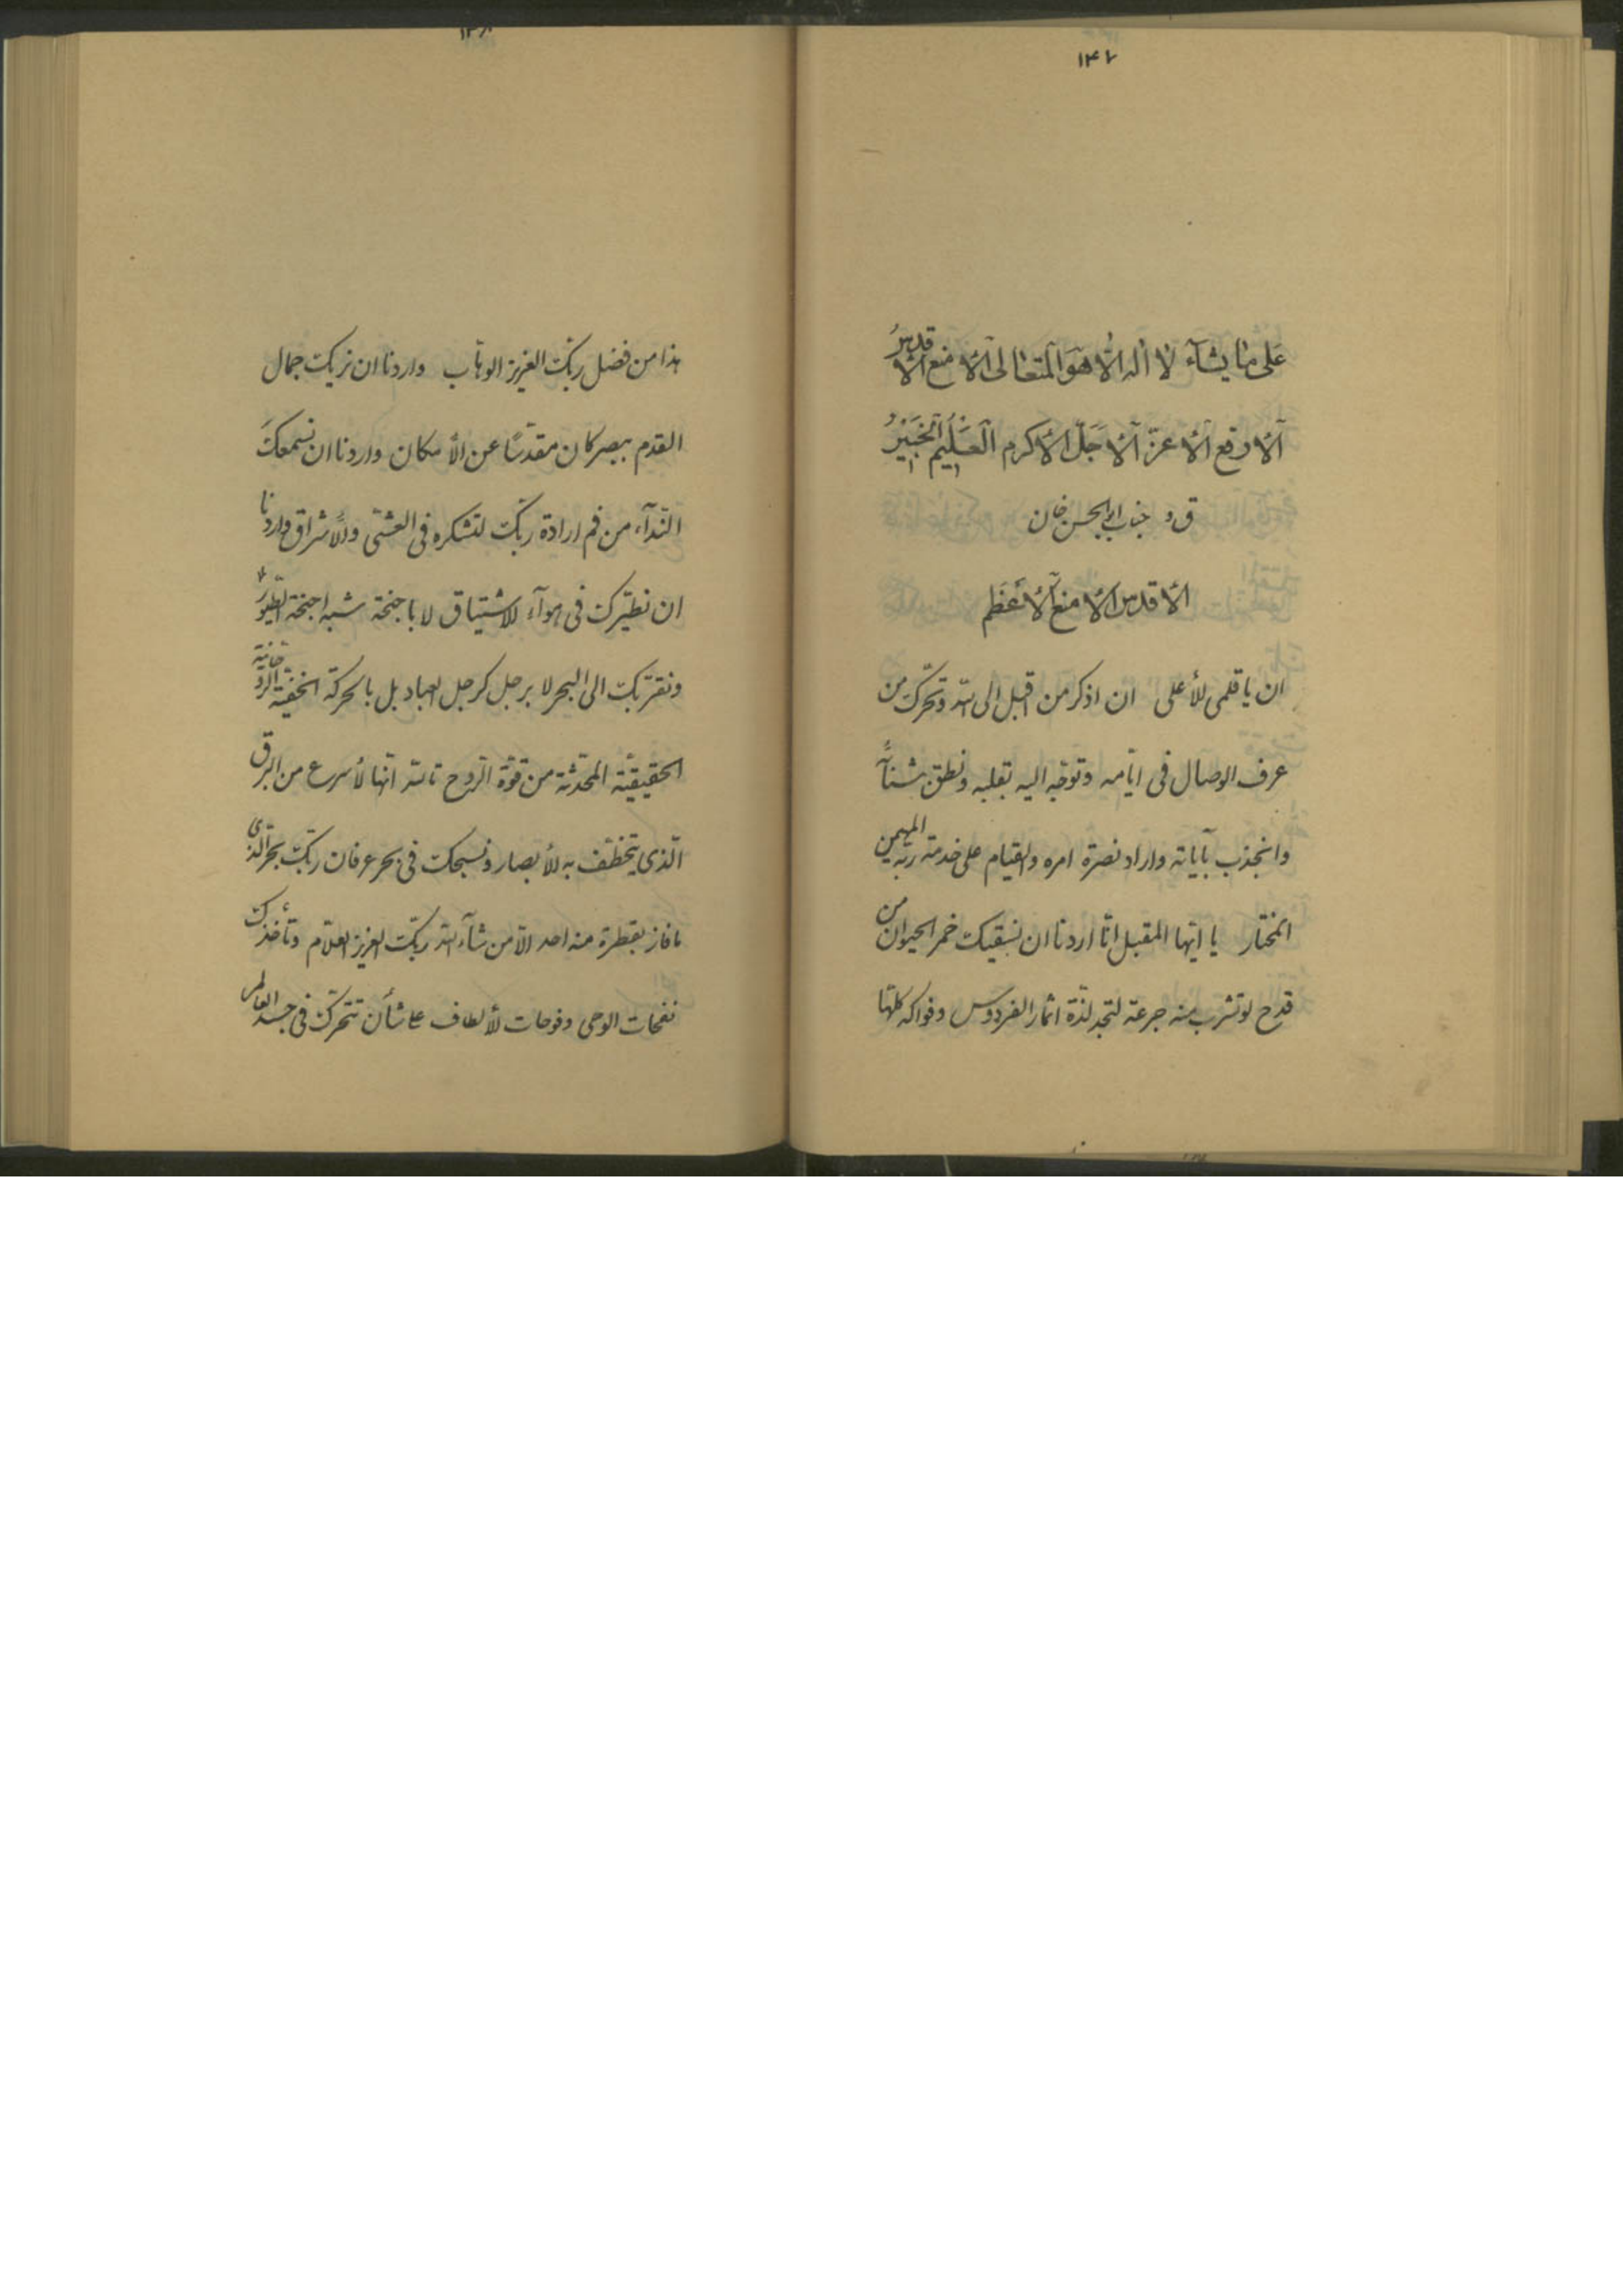 ١٤٧
عَلى ما يشآء لا اله الّا هوَ المتعالى الأمنع الأقدسُ
الأرفع الأعزّ الأجَلّ الأكرم العَليم الخَبيرُ
ق و جناب ابو الحسن خان
الأقدس الأمنع الأعظم
ان يا قلمى الأعلى ان اذكر من اقبل الى الله وتحرّك من
عرف الوصال فى ايّامه وتوجّه اليه بقلبه ونطق بثنآء
وانجذب بآياته واراد نصرة امره والقيام على خدمة ربّه المهيمن
المختار يا ايّها المقبل انّا اردنا ان نسقيك خمر الحيوان من
قدح لو تشرب منه جرعة لتجد لذّة اثمار الفردوس وفواكه كلّها
١٤٨
هذا من فضل ربّك العزيز الوهّاب واردنا ان نريك جمال
القدم ببصر كان مقدّسًا عن الأسكان واردنا ان نسمعكَ
النّدآء من فم ارادة ربّك لتشكره فى العشىّ والأشراق واردنا
ان نطيّرك فى هوآء الاشتياق لا باجنحة شبه اجنحة الطيور
ونقرّبك الى البحر لا برجل كرجل العباد بل بالحركة الخفيّة الرّوحانيّة
الحقيقيّة المحدثة من قوّة الرّوح تالله انّها لأسرع من البرق
الّذى يتخطّف به الأبصار ونسبحك فى بحر عرفان ربّك بحر الّذى
ما فاز بقطرة منه احد الّا من شآء الله ربّك العزيز العلّام وتأخذك
نفحات الوحى وفوحات الألطاف على شأن تتحرّك فى جسد العالم